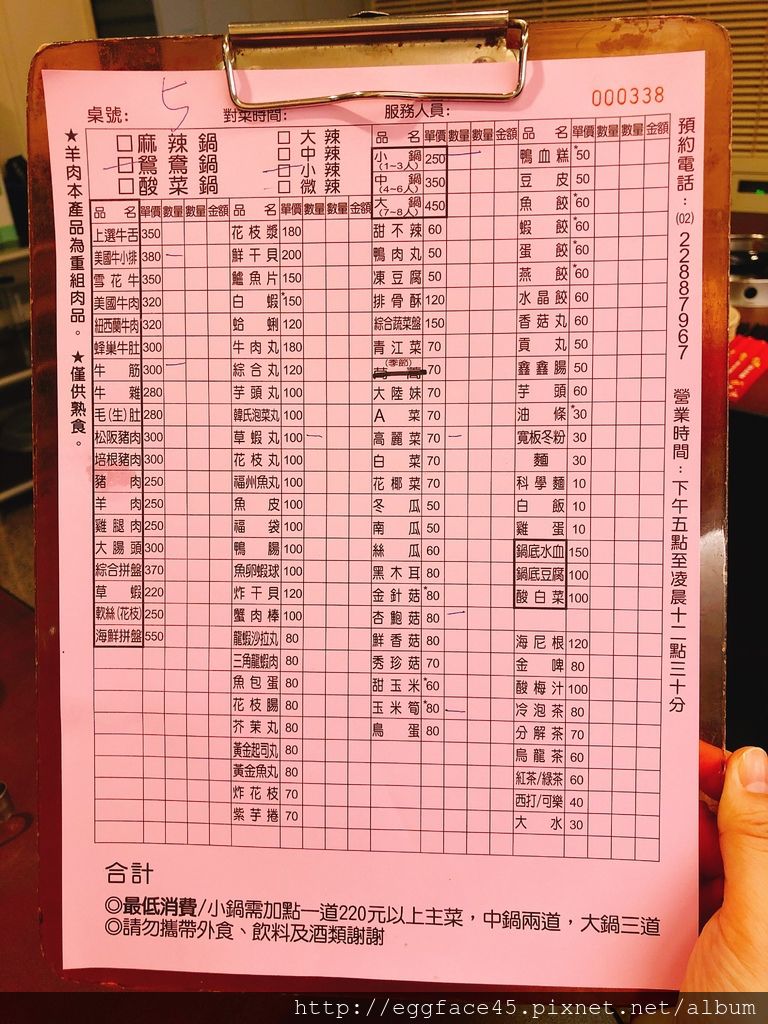 000338
桌號: 5 對菜時間: 服務人員:
□麻辣鍋 □大辣
□鴛鴦鍋 □中辣
□酸菜鍋 □小辣
□微辣
品名 單價 數量 數量 金額
上選牛舌 350
美國牛小排 380
雪花牛 350
美國牛肉 320
紐西蘭牛肉 320
蜂巢牛肚 300
牛筋 300
牛雜 280
毛(生)肚 280
松阪豬肉 300
培根豬肉 300
豬肉 250
羊肉 250
雞腿肉 250
大腸頭 300
綜合拼盤 370
草蝦 220
軟絲(花枝) 250
海鮮拼盤 550
品名 單價 數量 數量 金額
花枝漿 180
鮮干貝 200
鱸魚片 150
白蝦 *150
蛤蜊 120
牛肉丸 180
綜合丸 120
芋頭丸 100
韓氏泡菜丸 100
草蝦丸 100
花枝丸 100
福州魚丸 100
魚皮 100
福袋 100
鴨腸 100
魚卵蝦球 100
炸干貝 120
蟹肉棒 100
龍蝦沙拉丸 80
三角龍蝦肉 80
魚包蛋 80
花枝腸 80
芥茉丸 80
黃金起司丸 80
黃金魚丸 80
炸花枝 70
紫芋捲 70
品名 單價 數量 數量 金額
小鍋 (1~3人) 250
中鍋 (4~6人) 350
大鍋 (7~8人) 450
甜不辣 60
鴨肉丸 50
凍豆腐 50
排骨酥 120
綜合蔬菜盤 150
青江菜 70
(季節)
茼蒿 70
大陸妹 70
A菜 70
高麗菜 70
白菜 70
花椰菜 70
冬瓜 50
南瓜 50
絲瓜 60
黑木耳 80
金針菇 *80
杏鮑菇 80
鮮香菇 80
秀珍菇 70
甜玉米 *60
玉米筍 *80
鳥蛋 80
品名 單價 數量 數量 金額
鴨血糕 *50
豆皮 50
魚餃 *60
蝦餃 *60
蛋餃 *60
燕餃 *60
水晶餃 60
香菇丸 60
貢丸 50
鑫鑫腸 50
芋頭 60
油條 *30
寬板冬粉 30
麵 30
科學麵 10
白飯 10
雞蛋 10
鍋底水血 150
鍋底豆腐 100
酸白菜 100
海尼根 120
金啤 80
酸梅汁 100
冷泡茶 80
分解茶 70
烏龍茶 60
紅茶/綠茶 60
西打/可樂 40
大水 30
★羊肉本產品為重組肉品。★僅供熟食。
預約電話：(02)22887967 營業時間：下午五點至凌晨十二點三十分
合計
◎最低消費/小鍋需加點一道220元以上主菜，中鍋兩道，大鍋三道
◎請勿攜帶外食、飲料及酒類謝謝
http://eggface45.pixnet.net/album